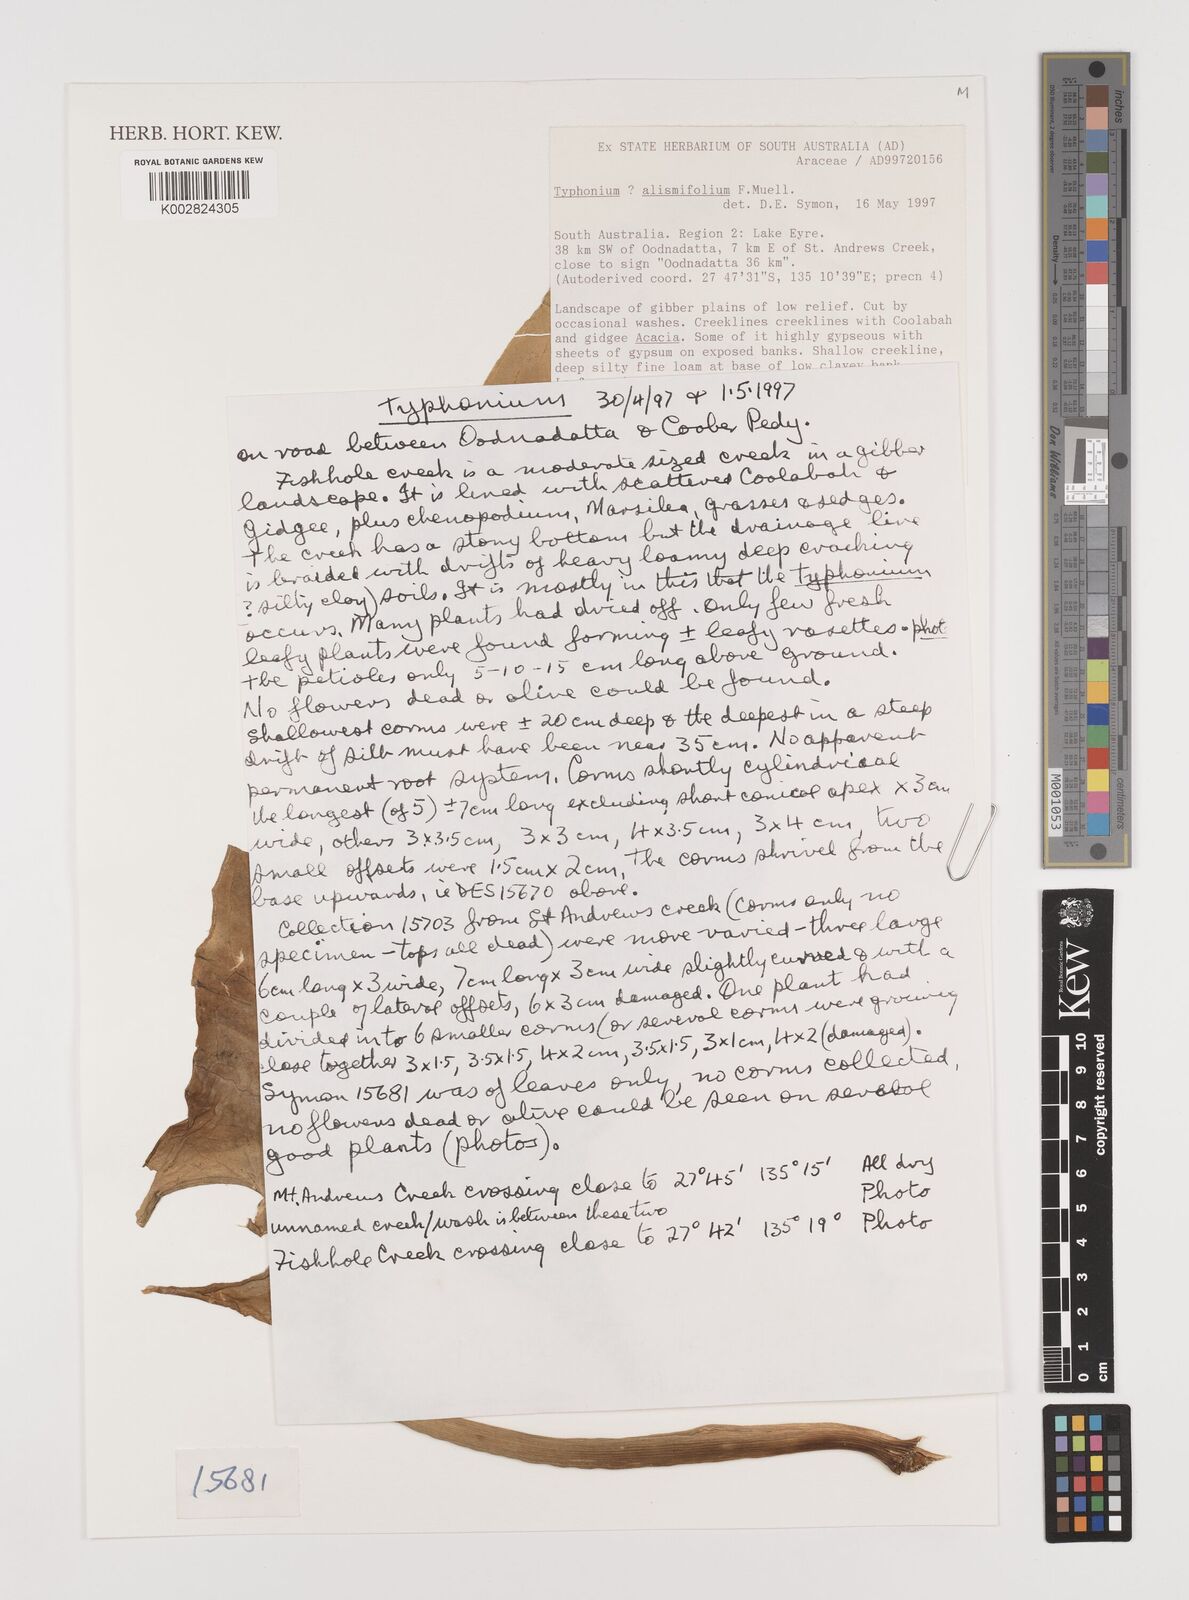 M
HERB. HORT. KEW.
ROYAL BOTANIC GARDENS KEW
K002824305
Ex STATE HERBARIUM OF SOUTH AUSTRALIA (AD)
Araceae / AD99720156
Typhonium ? alismifolium F.Muell.
det. D.E. Symon, 16 May 1997
South Australia. Region 2: Lake Eyre.
38 km SW of Oodnadatta, 7 km E of St. Andrews Creek,
close to sign "Oodnadatta 36 km".
(Autoderived coord. 27 47'31"S, 135 10'39"E; precn 4)
Landscape of gibber plains of low relief. Cut by
occasional washes. Creeklines creeklines with Coolabah
and gidgee Acacia. Some of it highly gypseous with
sheets of gypsum on exposed banks. Shallow creekline,
deep silty fine loam at base of low clayey bank
Typhonium 30/4/97 & 1.5.1997
on road between Oodnadatta & Coober Pedy.
Fishhole creek is a moderate sized creek in a gibber
landscape. It is lined with scattered Coolabah &
Gidgee, plus chenopodium, Marsilea, grasses & sedges.
The creek has a stony bottom but the drainage line
is braided with drifts of heavy loamy deep cracking
? silty clay) soils. It is mostly in this that the Typhonium
occurs. Many plants had dried off. Only few fresh
leafy plants were found forming ± leafy rosettes - phot
the petioles only 5-10-15 cm long above ground.
No flowers dead or alive could be found.
Shallowest corms were ± 20 cm deep & the deepest in a steep
drift of silt must have been near 35 cm. No apparent
permanent root system. Corms shortly cylindrical
the longest (of 5) ± 7cm long excluding short conical apex x 3 cm
wide, others 3 x 3.5cm, 3 x 3 cm, 4 x 3.5 cm, 3 x 4 cm, two
small offsets were 1.5cm x 2cm, The corms shrivel from the
base upwards, ie DES 15670 above.
Collection 15703 from St Andrews creek (corms only no
specimen - tops all dead) were more varied - three large
6cm long x 3 wide, 7cm long x 3cm wide slightly curved & with a
couple of lateral offsets, 6 x 3 cm damaged. One plant had
divided into 6 smaller corms (or several corms were growing
close together 3 x 1.5, 3.5 x 1.5, 4 x 2 cm, 3.5 x 1.5, 3 x 1cm, 4 x 2 (damaged).
Symon 15681 was of leaves only, no corms collected,
no flowers dead or alive could be seen on several
good plants (photos).
Mt. Andrews Creek crossing close to 27°45' 135°15' All dry Photo
unnamed creek/wash is between these two
Fishhole Creek crossing close to 27°42' 135°19° Photo
15681
inches
centimetres
Density
Don Williams
M001053
Kew
Royal Botanic Gardens
copyright reserved
0 1 2 3 4 5 6 7 8 9 10
cm